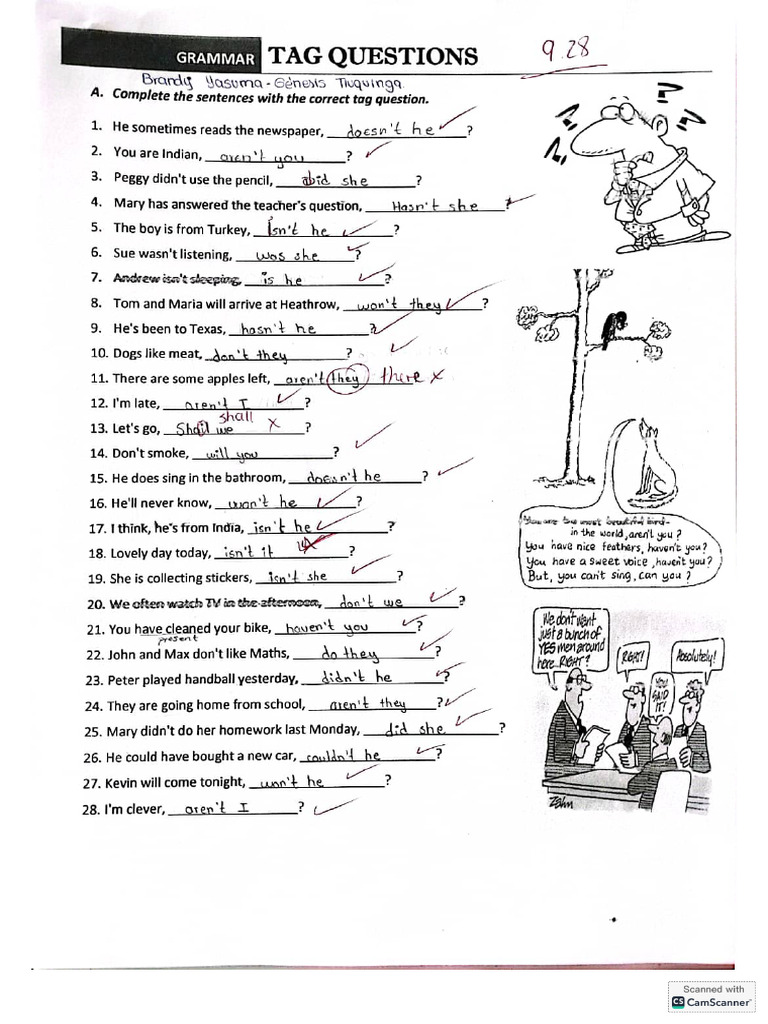 GRAMMAR TAG QUESTIONS 9.28
Brandy Yasuma - Génesis Tiuquinga
A. Complete the sentences with the correct tag question.
1. He sometimes reads the newspaper, doesn't he ?
2. You are Indian, aren't you ?
3. Peggy didn't use the pencil, did she ?
4. Mary has answered the teacher's question, Hasn't she ?
5. The boy is from Turkey, Isn't he ?
6. Sue wasn't listening, was she ?
7. Andrew isn't sleeping, is he ?
8. Tom and Maria will arrive at Heathrow, won't they ?
9. He's been to Texas, hasn't he ?
10. Dogs like meat, don't they ?
11. There are some apples left, aren't they there x
12. I'm late, aren't I ?
shall
13. Let's go, Shail we x ?
14. Don't smoke, will you ?
15. He does sing in the bathroom, doesn't he ?
16. He'll never know, won't he ?
17. I think, he's from India, isn't he ?
18. Lovely day today, isn't it ?
19. She is collecting stickers, isn't she ?
20. We often watch TV in the afternoon, don't we ?
21. You have cleaned your bike, haven't you ?
present
22. John and Max don't like Maths, do they ?
23. Peter played handball yesterday, didn't he ?
24. They are going home from school, aren't they ?
25. Mary didn't do her homework last Monday, did she ?
26. He could have bought a new car, couldn't he ?
27. Kevin will come tonight, won't he ?
28. I'm clever, aren't I ?
? ? ? ?
You are the most beautiful bird
in the world, aren't you ?
You have nice feathers, haven't you?
You have a sweet voice, haven't you?
But, you can't sing, can you ?
We don't want
just a bunch of
YES men around
here...RIGHT?
RIGHT!
YOU
SAID
IT!
Absolutely!
Zahn
Scanned with
CS CamScanner